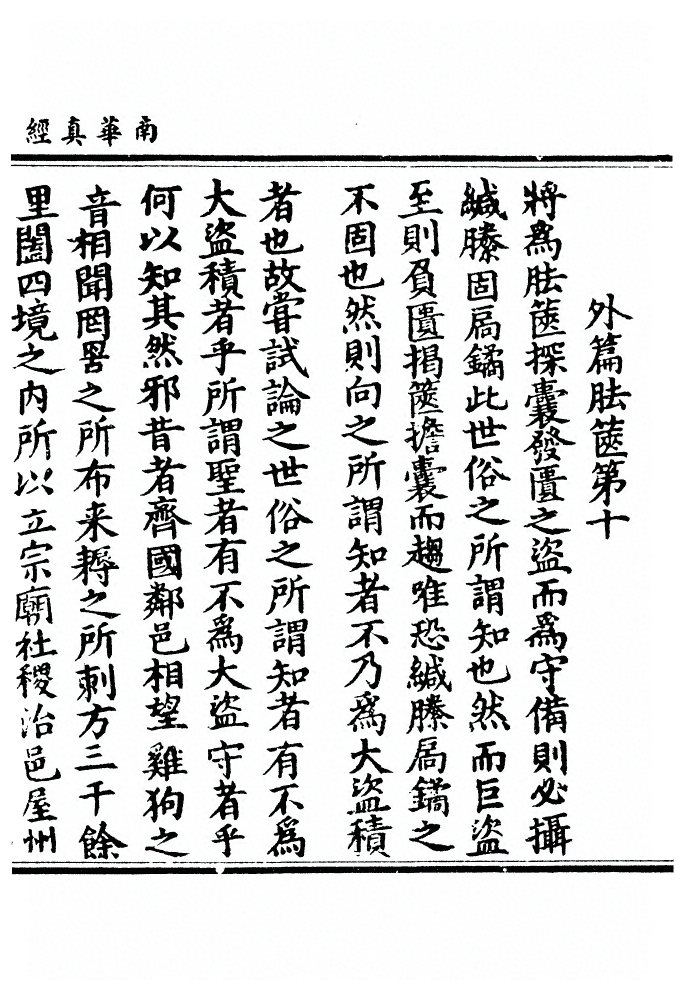 南華真經
外篇胠篋第十
將為胠篋探囊發匱之盜而為守備則必攝
緘縢固扃鐍此世俗之所謂知也然而巨盜
至則負匱揭篋擔囊而趨唯恐緘縢扃鐍之
不固也然則向之所謂知者不乃為大盜積
者也故嘗試論之世俗之所謂知者有不為
大盜積者乎所謂聖者有不為大盜守者乎
何以知其然邪昔者齊國鄰邑相望雞狗之
音相聞罔罟之所布耒耨之所刺方二千餘
里闔四境之內所以立宗廟社稷治邑屋州